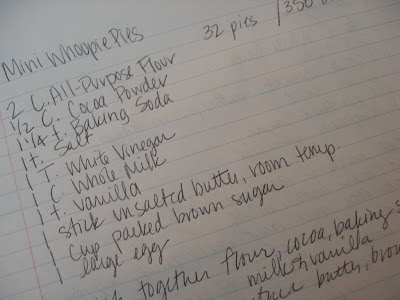 Mini Whoopie Pies 32 pies / 350
2 C. All-Purpose Flour
1/2 C. Cocoa Powder
1 1/4 t. Baking Soda
1 t. Salt
1 T. White Vinegar
1 C Whole Milk
1 t. vanilla
1 stick unsalted butter, room temp.
1 cup packed brown sugar
1 large egg
together flour, cocoa, baking
milk + vanilla
butter, brow